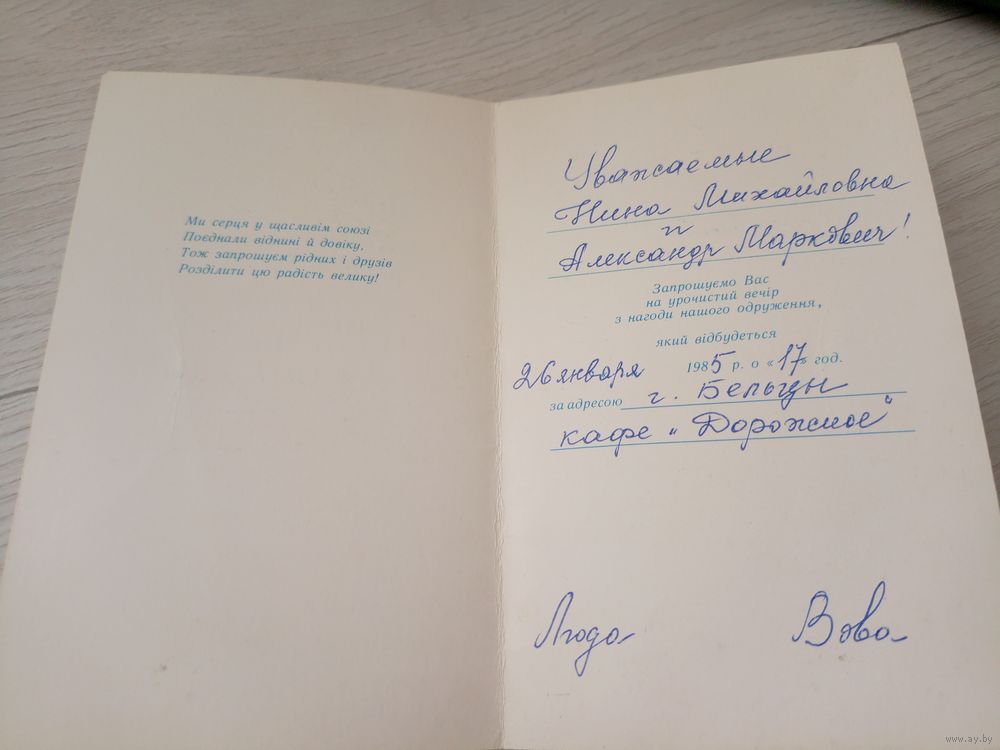 Ми серця у щасливім союзі
Поєднали віднині й довіку,
Тож запрошуєм рідних і друзів
Розділити цю радість велику!
Уважаемые
Нина Михайловна
и
Александр Маркович!
Запрошуємо Вас
на урочистий вечір
з нагоди нашого одруження,
який відбудеться
26 января 1985 р. о «17» год.
за адресою г. Бельцы
кафе „Дорожное“
Люда Вова
www.ay.by